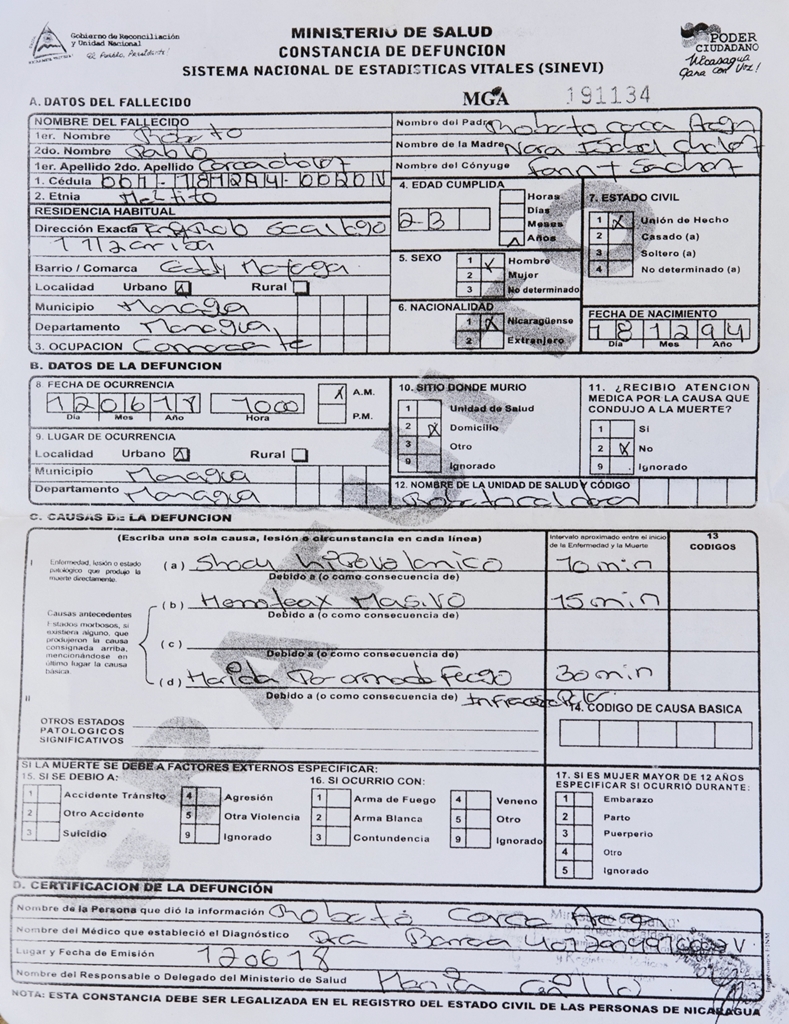 Gobierno de Reconciliación
y Unidad Nacional
El Pueblo, Presidente!
PODER
CIUDADANO
Nicaragua
gana con Voz!
MINISTERIO DE SALUD
CONSTANCIA DE DEFUNCION
SISTEMA NACIONAL DE ESTADISTICAS VITALES (SINEVI)
A. DATOS DEL FALLECIDO
MGA 191134
NOMBRE DEL FALLECIDO
1er. Nombre Roberto
2do. Nombre Pablo
1er. Apellido 2do. Apellido
1. Cédula 001-181294-0020V
2. Etnia Mestizo
RESIDENCIA HABITUAL
Dirección Exacta
1 1/2 arriba
Barrio / Comarca
Localidad Urbano X Rural
Municipio Managua
Departamento Managua
3. OCUPACION Comerciante
Nombre del Padre Roberto
Nombre de la Madre Isabel
Nombre del Cónyuge
4. EDAD CUMPLIDA
23
Horas
Días
Meses
Años
5. SEXO
1 X Hombre
2 Mujer
3 No determinado
6. NACIONALIDAD
1 X Nicaragüense
2 Extranjero
7. ESTADO CIVIL
1 X Unión de Hecho
2 Casado (a)
3 Soltero (a)
4 No determinado (a)
FECHA DE NACIMIENTO
181294
Día Mes Año
B. DATOS DE LA DEFUNCION
8. FECHA DE OCURRENCIA
120618 1000
Día Mes Año Hora
X A.M.
P.M.
9. LUGAR DE OCURRENCIA
Localidad Urbano X Rural
Municipio Managua
Departamento Managua
10. SITIO DONDE MURIO
1 Unidad de Salud
2 X Domicilio
3 Otro
9 Ignorado
11. ¿RECIBIO ATENCION
MEDICA POR LA CAUSA QUE
CONDUJO A LA MUERTE?
1 Si
2 X No
9 Ignorado
12. NOMBRE DE LA UNIDAD DE SALUD Y CÓDIGO
C. CAUSAS DE LA DEFUNCION
(Escriba una sola causa, lesión o circunstancia en cada línea)
Intervalo aproximado entre el inicio
de la Enfermedad y la Muerte
13
CODIGOS
I
Enfermedad, lesión o estado
patológico que produjo la
muerte directamente.
(a) Shock Hipovolemico 10 min
Debido a (o como consecuencia de)
Causas antecedentes
Estados morbosos, si
existiera alguno, que
produjeron la causa
consignada arriba,
mencionándose en
último lugar la causa
básica.
(b) Hemotorax Masivo 15 min
Debido a (o como consecuencia de)
(c)
Debido a (o como consecuencia de)
(d) Herida Por arma de Fuego 30 min
Debido a (o como consecuencia de)
II
OTROS ESTADOS
PATOLOGICOS
SIGNIFICATIVOS
14. CODIGO DE CAUSA BASICA
SI LA MUERTE SE DEBE A FACTORES EXTERNOS ESPECIFICAR:
15. SI SE DEBIO A:
1 Accidente Tránsito
2 Otro Accidente
3 Suicidio
4 Agresión
5 Otra Violencia
9 Ignorado
16. SI OCURRIO CON:
1 Arma de Fuego
2 Arma Blanca
3 Contundencia
4 Veneno
5 Otro
9 Ignorado
17. SI ES MUJER MAYOR DE 12 AÑOS
ESPECIFICAR SI OCURRIÓ DURANTE:
1 Embarazo
2 Parto
3 Puerperio
4 Otro
5 Ignorado
D. CERTIFICACION DE LA DEFUNCIÓN
Nombre de la Persona que dió la información Roberto
Nombre del Médico que estableció el Diagnóstico Dra
Lugar y Fecha de Emisión 120618
Nombre del Responsable o Delegado del Ministerio de Salud
NOTA: ESTA CONSTANCIA DEBE SER LEGALIZADA EN EL REGISTRO DEL ESTADO CIVIL DE LAS PERSONAS DE NICARAGUA
GRATUITO